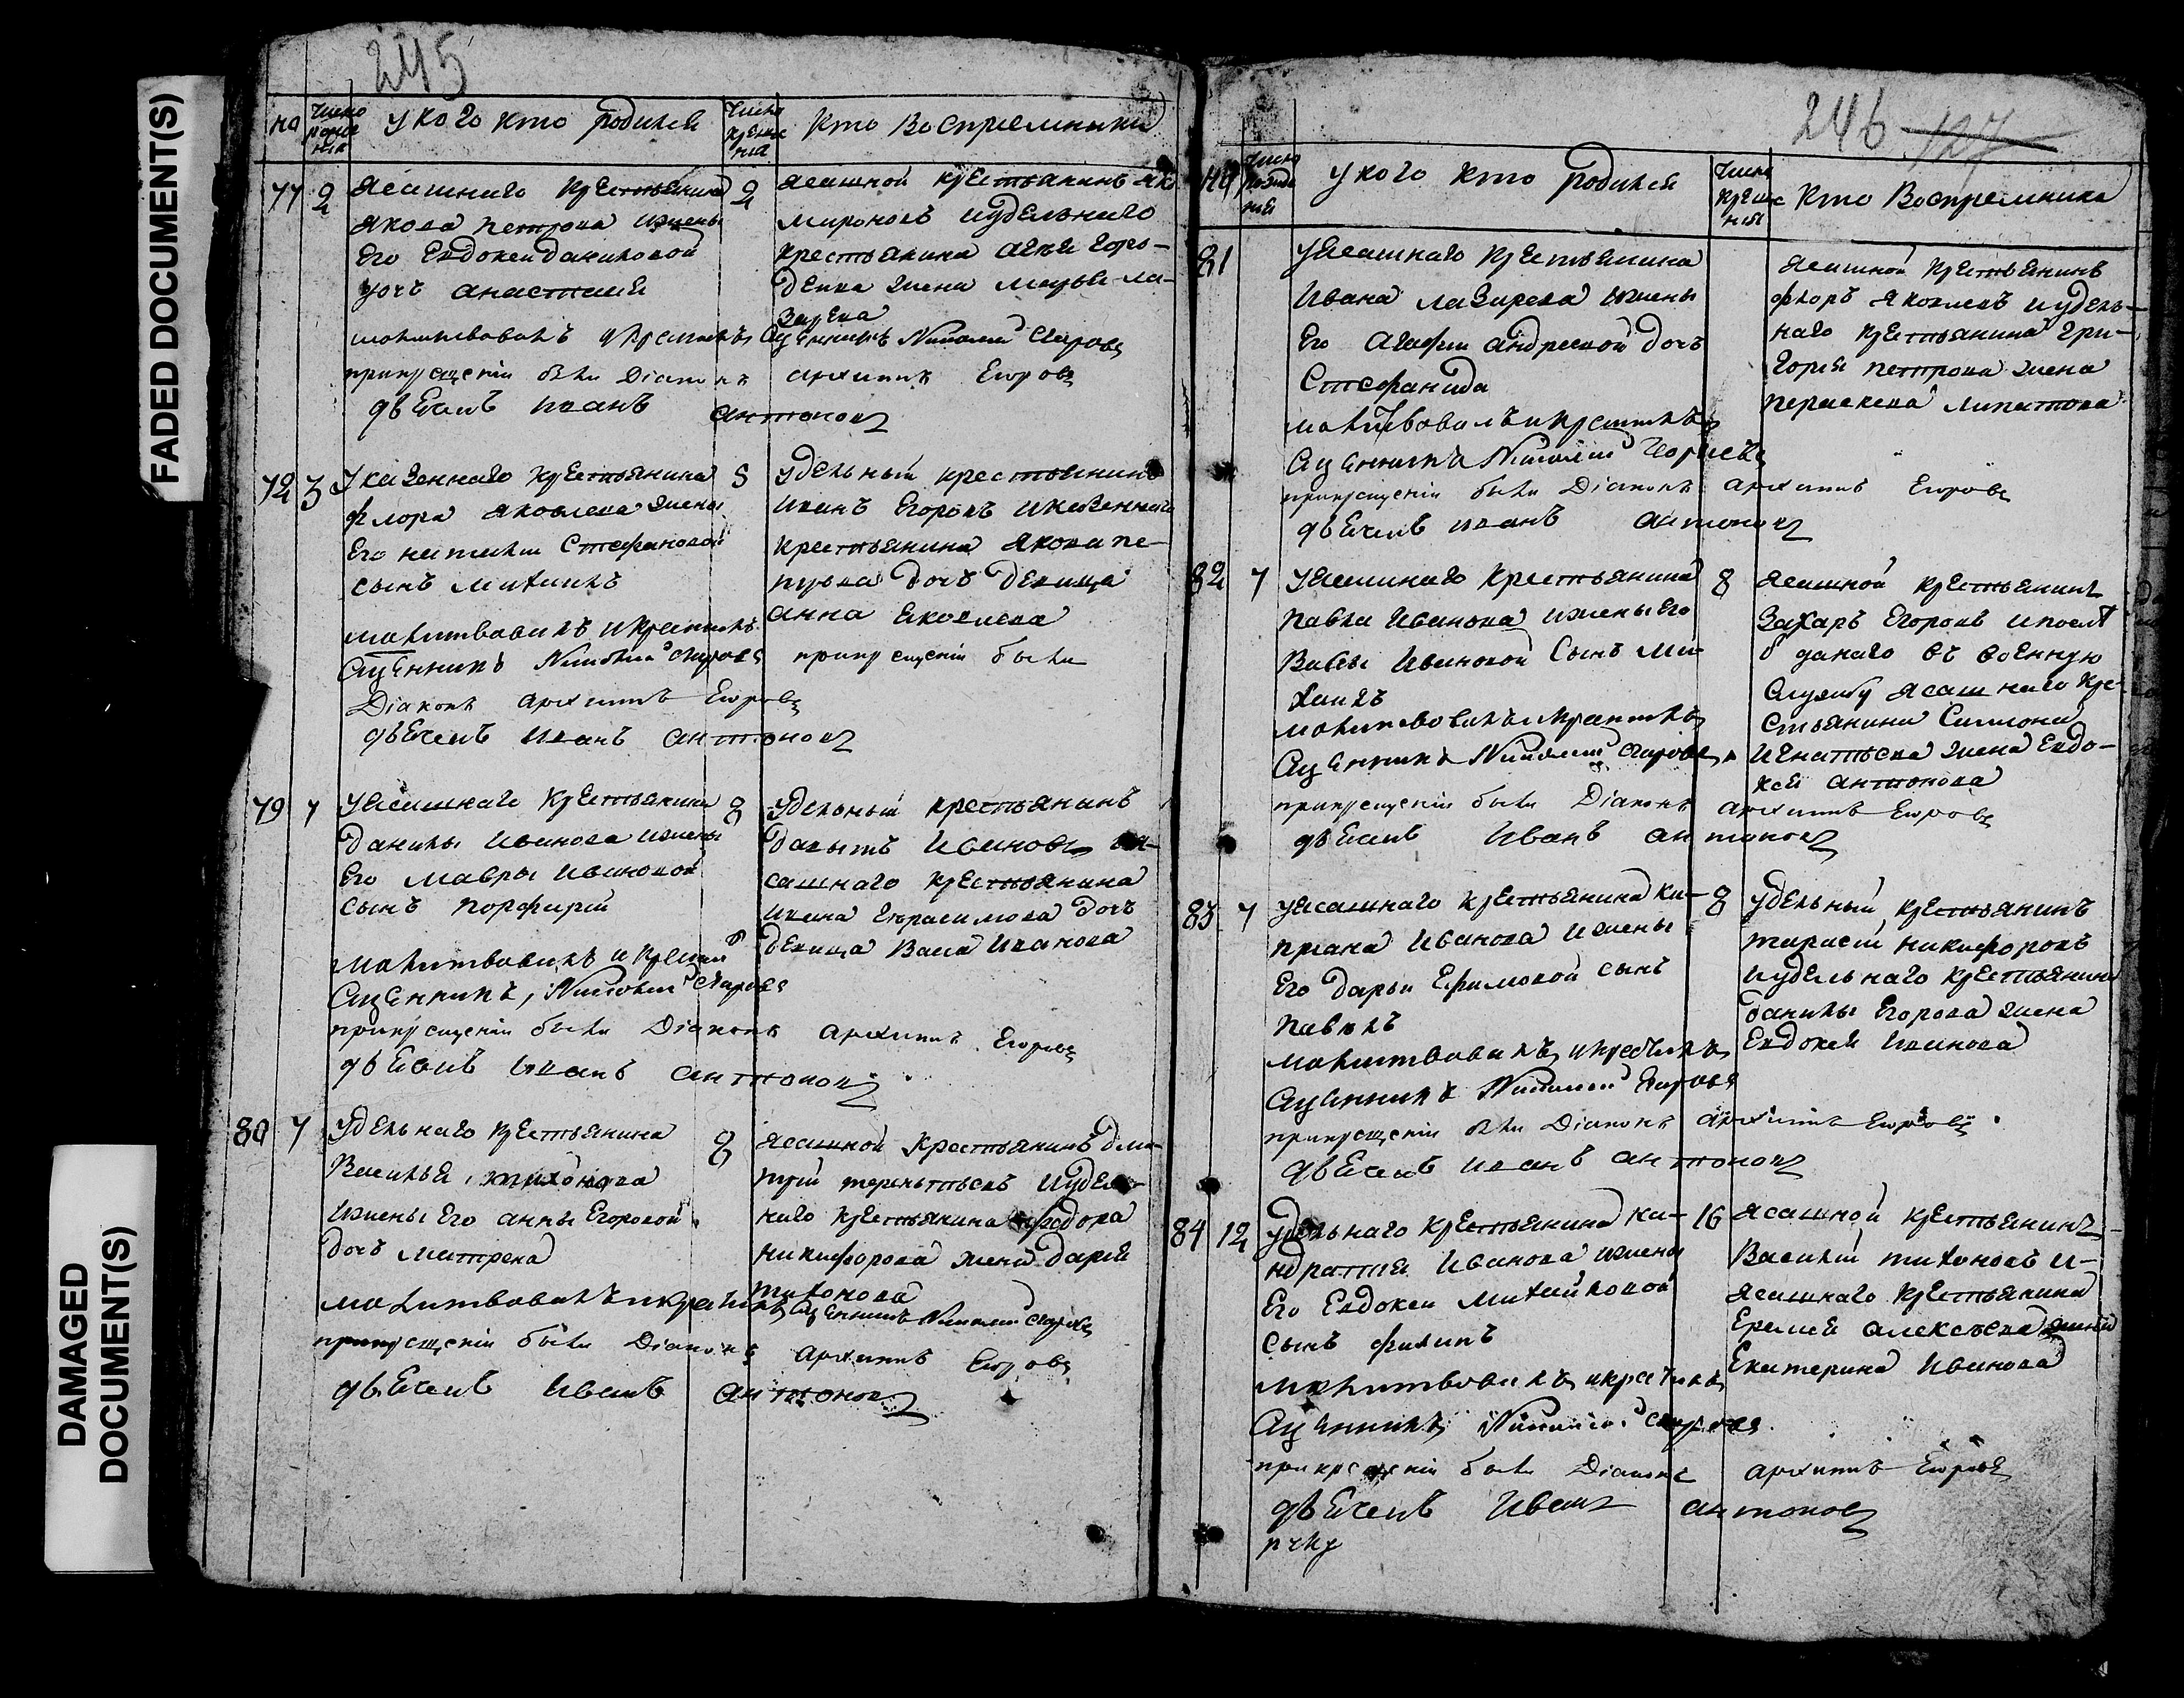 FADED DOCUMENT(S)
DAMAGED
DOCUMENT(S)
245
но
число рожде ния
у кого кто родился
число креще ния
кто восприемники
77 2 ясашнаго крестьянина 2
якова петрова ижены
его Евдокеи даниловой
дочь анастасия
молитвовалъ икрестилъ священникъ Николай
прикрещении были Діаконъ архипъ Егоровъ
дьячекъ иванъ антоновъ
ясашной крестьянинъ
мироновъ иудельнаго
крестьянина
жена марья ла-
зарева
3 Указеннаго крестьянина 5
флора яковлева жены
его наталии Стефановой
сынъ михаилъ
молитвовалъ икрестилъ
священникъ Николай прикрещении были
Діаконъ архипъ Егоровъ
дьячекъ иванъ антоновъ
удельный крестьянинъ
иванъ Егоровъ иказеннаго
крестьянина якова пе-
трова дочь девица
анна яковлева
79 7 Уясашнаго крестьянина 8
данилы иванова ижены
его мавры ивановой
сынъ порфирій
молитвовалъ и крестилъ
священникъ, Николай
прикрещении были Діаконъ архипъ Егоровъ
дьячекъ иванъ антоновъ
удельный крестьянинъ
давытъ ивановъ ия-
сашнаго крестьянина
ивана герасимова дочь
девица васа иванова
80 7 Удельнаго крестьянина 8
василья тихонова
ижены его анны Егоровой
дочь матрена
молитвовалъ икрестилъ священникъ Николай
прикрещении были Діаконъ архипъ Егоровъ
дьячекъ иванъ антоновъ
ясашной крестьянинъ дми-
трій терентьевъ иудель-
наго крестьянина федора
никифорова жена дарья
тихонова
246 127
но
число рожде ния
у кого кто родился
число креще ния
кто восприемники
81 уясашнаго крестьянина
ивана лазарева ижены
его агафьи андреевой дочь
Стефанида
молитвовалъ икрестилъ
священникъ Николай
прикрещении были Діаконъ архипъ Егоровъ
дьячекъ иванъ антоновъ
ясашной крестьянинъ
флоръ яковлевъ иудель-
наго крестьянина гри-
горья петрова жена
параскева липатова
82 7 уясашнаго крестьянина 8
павла иванова ижены его
васы ивановой сынъ ми-
хаилъ
молитвовалъ икрестилъ
священникъ Николай
прикрещении были Діаконъ архипъ Егоровъ
дьячекъ иванъ антоновъ
ясашной крестьянинъ
захаръ Егоровъ
данаго въ военную
службу ясашнаго кре-
стьянина Симиона
игнатьева жена Евдо-
кея антонова
83 7 уясашнаго крестьянина ки- 8
приана иванова ижены
его дарьи Ефимовой сынъ
павелъ
молитвовалъ икрестилъ
священникъ Николай
прикрещении были Діаконъ архипъ Егоровъ
дьячекъ иванъ антоновъ
удельный крестьянинъ
тарасій никифоровъ
иудельнаго крестьянина
данилы Егорова жена
Евдокея иванова
84 12 удельнаго крестьянина ка- 16
ндратия иванова ижены
его Евдокеи михайловой
сынъ филипъ
молитвовалъ икрестилъ
священникъ Николай
прикрещении были Діаконъ архипъ Егоровъ
дьячекъ иванъ антоновъ
ясашной крестьянинъ
василий тихоновъ и-
ясашнаго крестьянина
еремея алексеева жена
Екатерина иванова